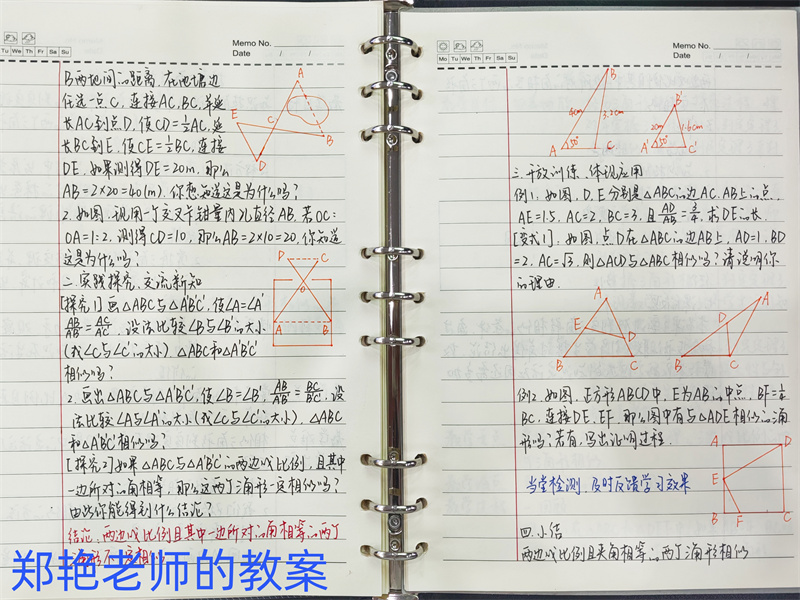 Tu We Th Fr Sa Su
Memo No.
Date / /
B两地间的距离,在池塘边
任选一点C,连接AC,BC,并延
长AC到点D,使CD=1/2AC,延
长BC到E,使CE=1/2BC,连接
DE,如果测得DE=20m,那么
AB=2×20=40(m).你想知道这是为什么吗?
A
E
C
B
D
2.如图,现用一个交叉卡钳量内孔直径AB,若OC:
OA=1:2,测得CD=10,那么AB=2×10=20,你知道
这是为什么吗?
二.实践探究,交流新知
[探究1]画△ABC与△A'B'C',使∠A=∠A'
AB/A'B'=AC/A'C',设法比较∠B与∠B'的大小
(或∠C与∠C'的大小).△ABC和△A'B'C'
相似吗?
D C
O
A B
2.画出△ABC与△A'B'C',使∠B=∠B',AB/A'B'=BC/B'C',设
法比较∠A与∠A'的大小(或∠C与∠C'的大小),△ABC
和△A'B'C'相似吗?
[探究2]如果△ABC与△A'B'C'的两边成比例,且其中
一边所对的角相等,那么这两个三角形一定相似吗?
由此你能得到什么结论?
结论:两边成比例且其中一边所对的角相等的两个
三角形不一定相似
郑艳老师的教案
Mo Tu We Th Fr Sa Su
Memo No.
Date / /
B
4cm 3.2cm
A 50° C
B'
2cm 1.6cm
A' 50° C'
三.开放训练,体现应用
例1:如图,D,E分别是△ABC的边AC,AB上的点,
AE=1.5,AC=2,BC=3,且AD/AB=3/4,求DE的长
[变式1]:如图,点D在△ABC的边AB上,AD=1,BD
=2,AC=√3,则△ACD与△ABC相似吗?请说明你
的理由.
A
E
D
B C
A
D
B C
例2:如图,正方形ABCD中,E为AB的中点,BF=1/4
BC,连接DE,EF,那么图中有与△ADE相似的三角
形吗?若有,写出证明过程
A D
E
B F C
当堂检测,及时反馈学习效果
四.小结
两边成比例且夹角相等的两个三角形相似